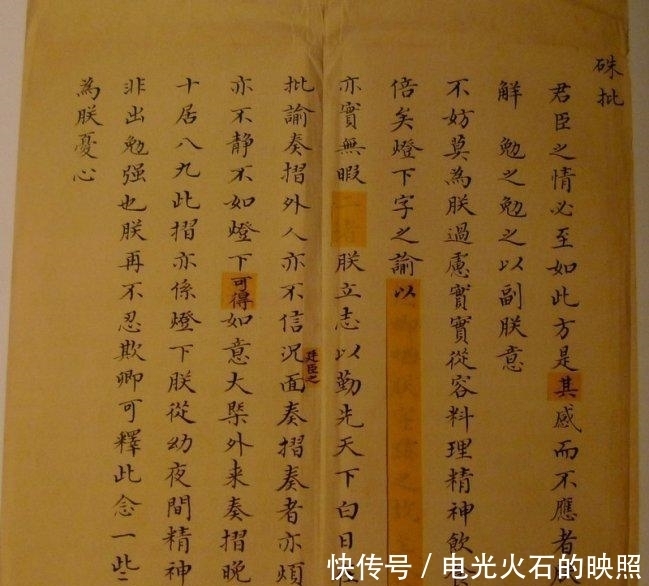 硃批
君臣之情必至如此方是其感而不應者
解 勉之勉之以副朕意
不妨莫為朕過慮實實從容料理精神飲
倍矣燈下字之諭以
亦實無暇 朕立志以勤先天下白日
批諭奏摺外人亦不信況廷臣之面奏摺奏者亦煩
亦不静不如燈下可得如意大槩外来奏摺晚
十居八九此摺亦係燈下朕從幼夜間精神
非出勉强也朕再不忍欺卿可釋此念一些
為朕憂心
快传号 / 电光火石的映照